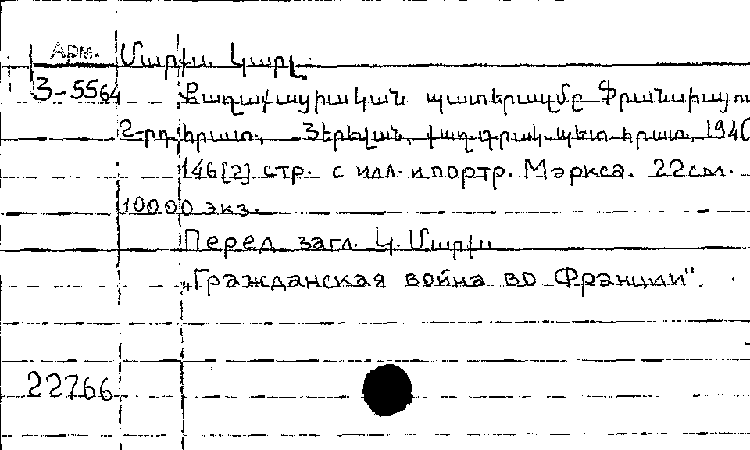 Арм. Մարքս, Կարլ
3-5564 Քաղաքացիական պատերազմը Ֆրանսիայու
2-րդ հրատ., Յերևան, քաղ. գրակ. պետ. հրատ., 1940
146[2] стр. с илл. и портр. Маркса. 22см.
10000 экз.
Перед загл. Կ. Մարքս
„Гражданская война во Франции".
22766